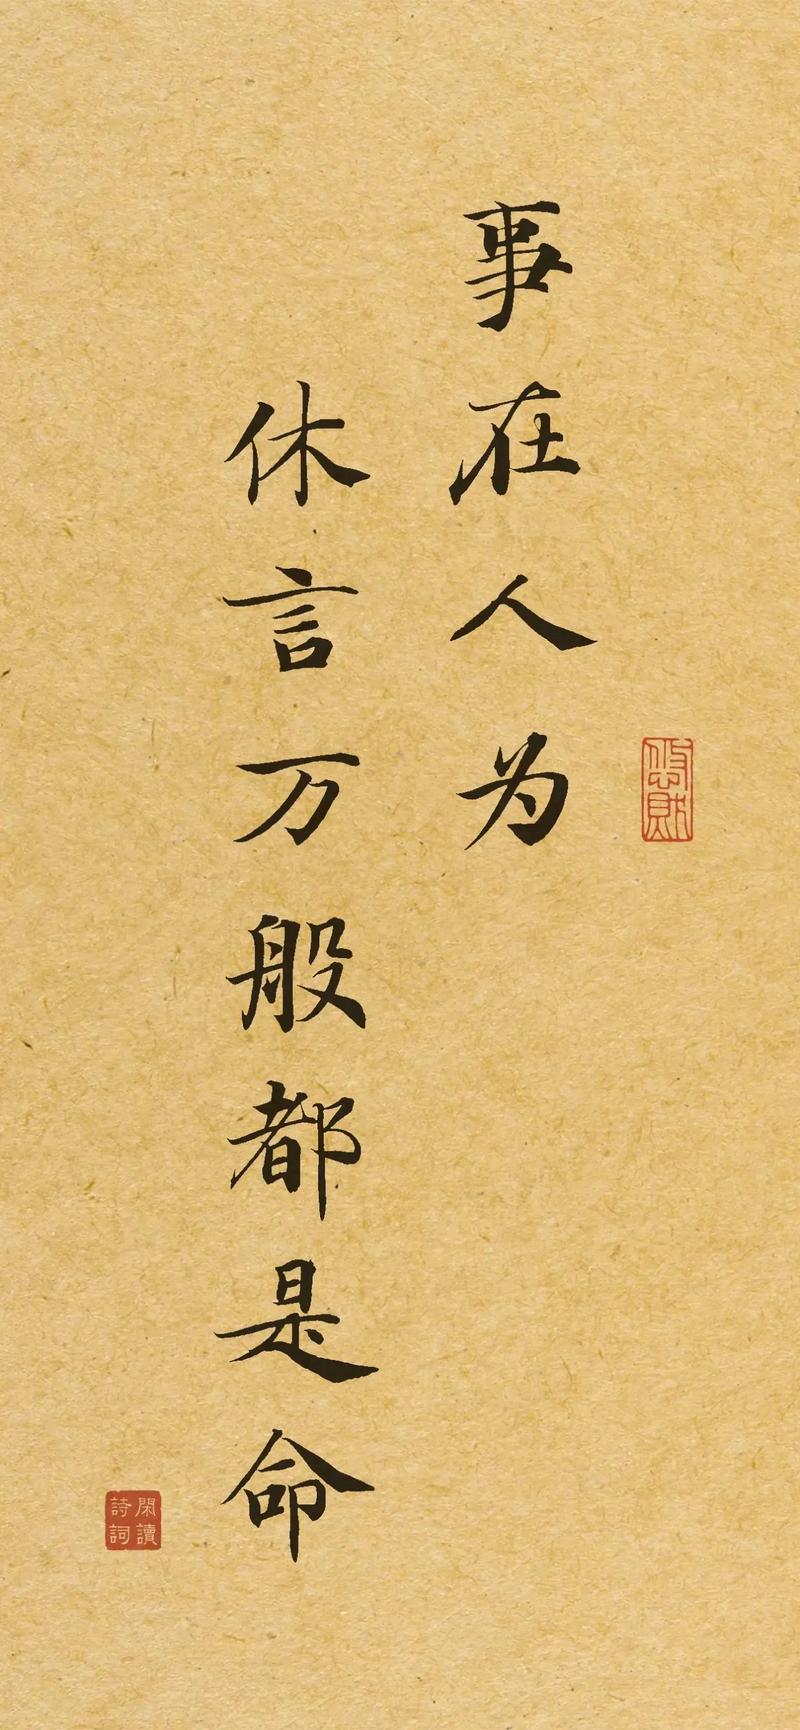 事在人为
休言万般都是命
閑讀
詩詞